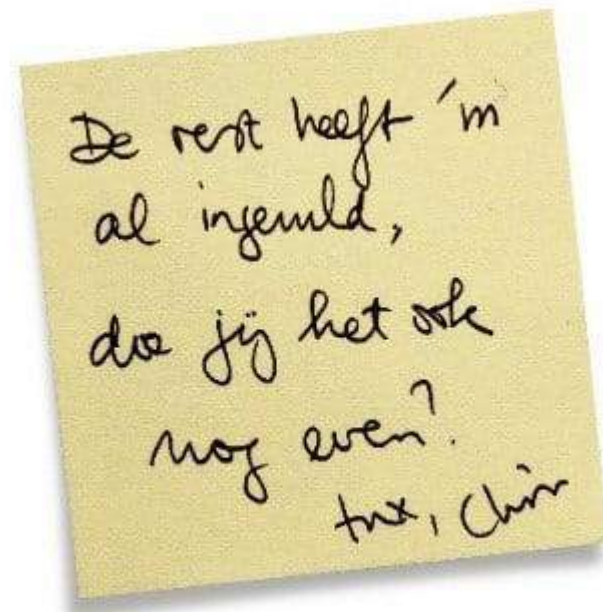 De rest heeft 'm
al ingevuld,
doe jij het ook
nog even?
tnx,